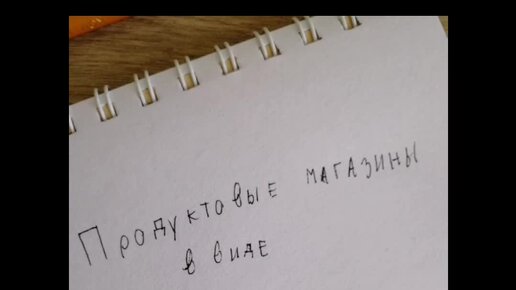 Продуктовые магазины
в виде